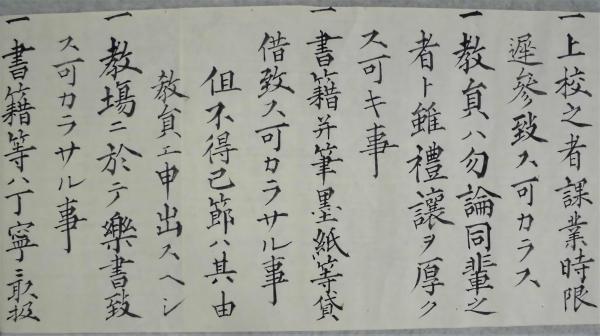 一上校之者課業時限
遲參致ス可カラス
一教員ハ勿論同輩之
者ト雖禮讓ヲ厚ク
ス可キ事
一書籍并筆墨紙等貸
借致ス可カラサル事
但不得已節ハ其由
教員エ申出スヘシ
一教場ニ於テ樂書致
ス可カラサル事
一書籍等ハ丁寧ニ取扱